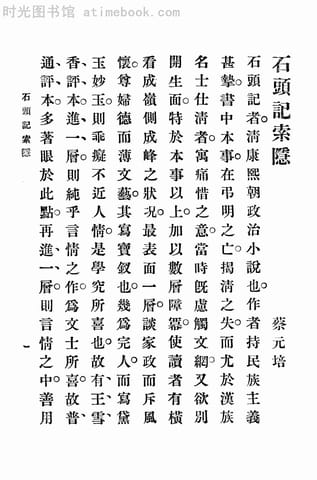 时光图书馆 - atimebook.com
石頭記索隱
蔡元培
石頭記者。淸康熙朝政治小說也。作者持民族主義
甚摯。書中本事。在弔明之亡。揭淸之失。而尤於漢族
名士仕淸者。寓痛惜之意。當時旣慮觸文網。又欲別
開生面。特於本事以上。加以數層障羃。使讀者有橫
看成嶺側成峰之狀况。最表面一層。談家政而斥風
懷。尊婦德而薄文藝。其寫寶釵也。幾爲完人。而寫黛
玉妙玉。則乖癡不近人情。是學究所喜也。故有王雪、
香評本。進一層。則純乎言情之作。爲文士所喜。故普、
通評本。多著眼於此點。再進一層。則言情之中。善用
石頭記索隱
一